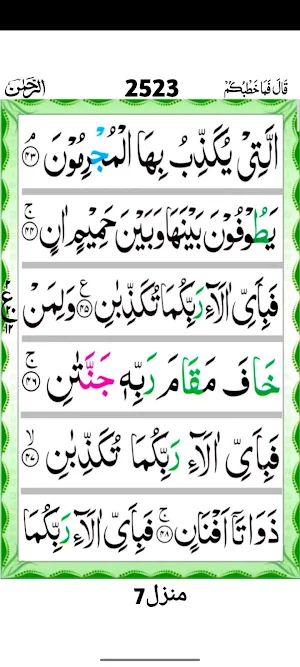 الرحمٰن 2523 قَالَ فَمَا خَطْبُكُمْ
الَّتِيْ يُكَذِّبُ بِهَا الْمُجْرِمُوْنَ ۘ﴿۴۳﴾
يَطُوْفُوْنَ بَيْنَهَا وَبَيْنَ حَمِيْمٍ اٰنٍ ۚ﴿۴۴﴾
فَبِاَيِّ اٰلَآءِ رَبِّكُمَا تُكَذِّبٰنِ ﴿۴۵﴾ ع وَلِمَنْ
خَافَ مَقَامَ رَبِّهٖ جَنَّتٰنِ ۚ﴿۴۶﴾
فَبِاَيِّ اٰلَآءِ رَبِّكُمَا تُكَذِّبٰنِ ۙ﴿۴۷﴾
ذَوَاتَاۤ اَفْنَانٍ ۚ﴿۴۸﴾ فَبِاَيِّ اٰلَآءِ رَبِّكُمَا
منزل7